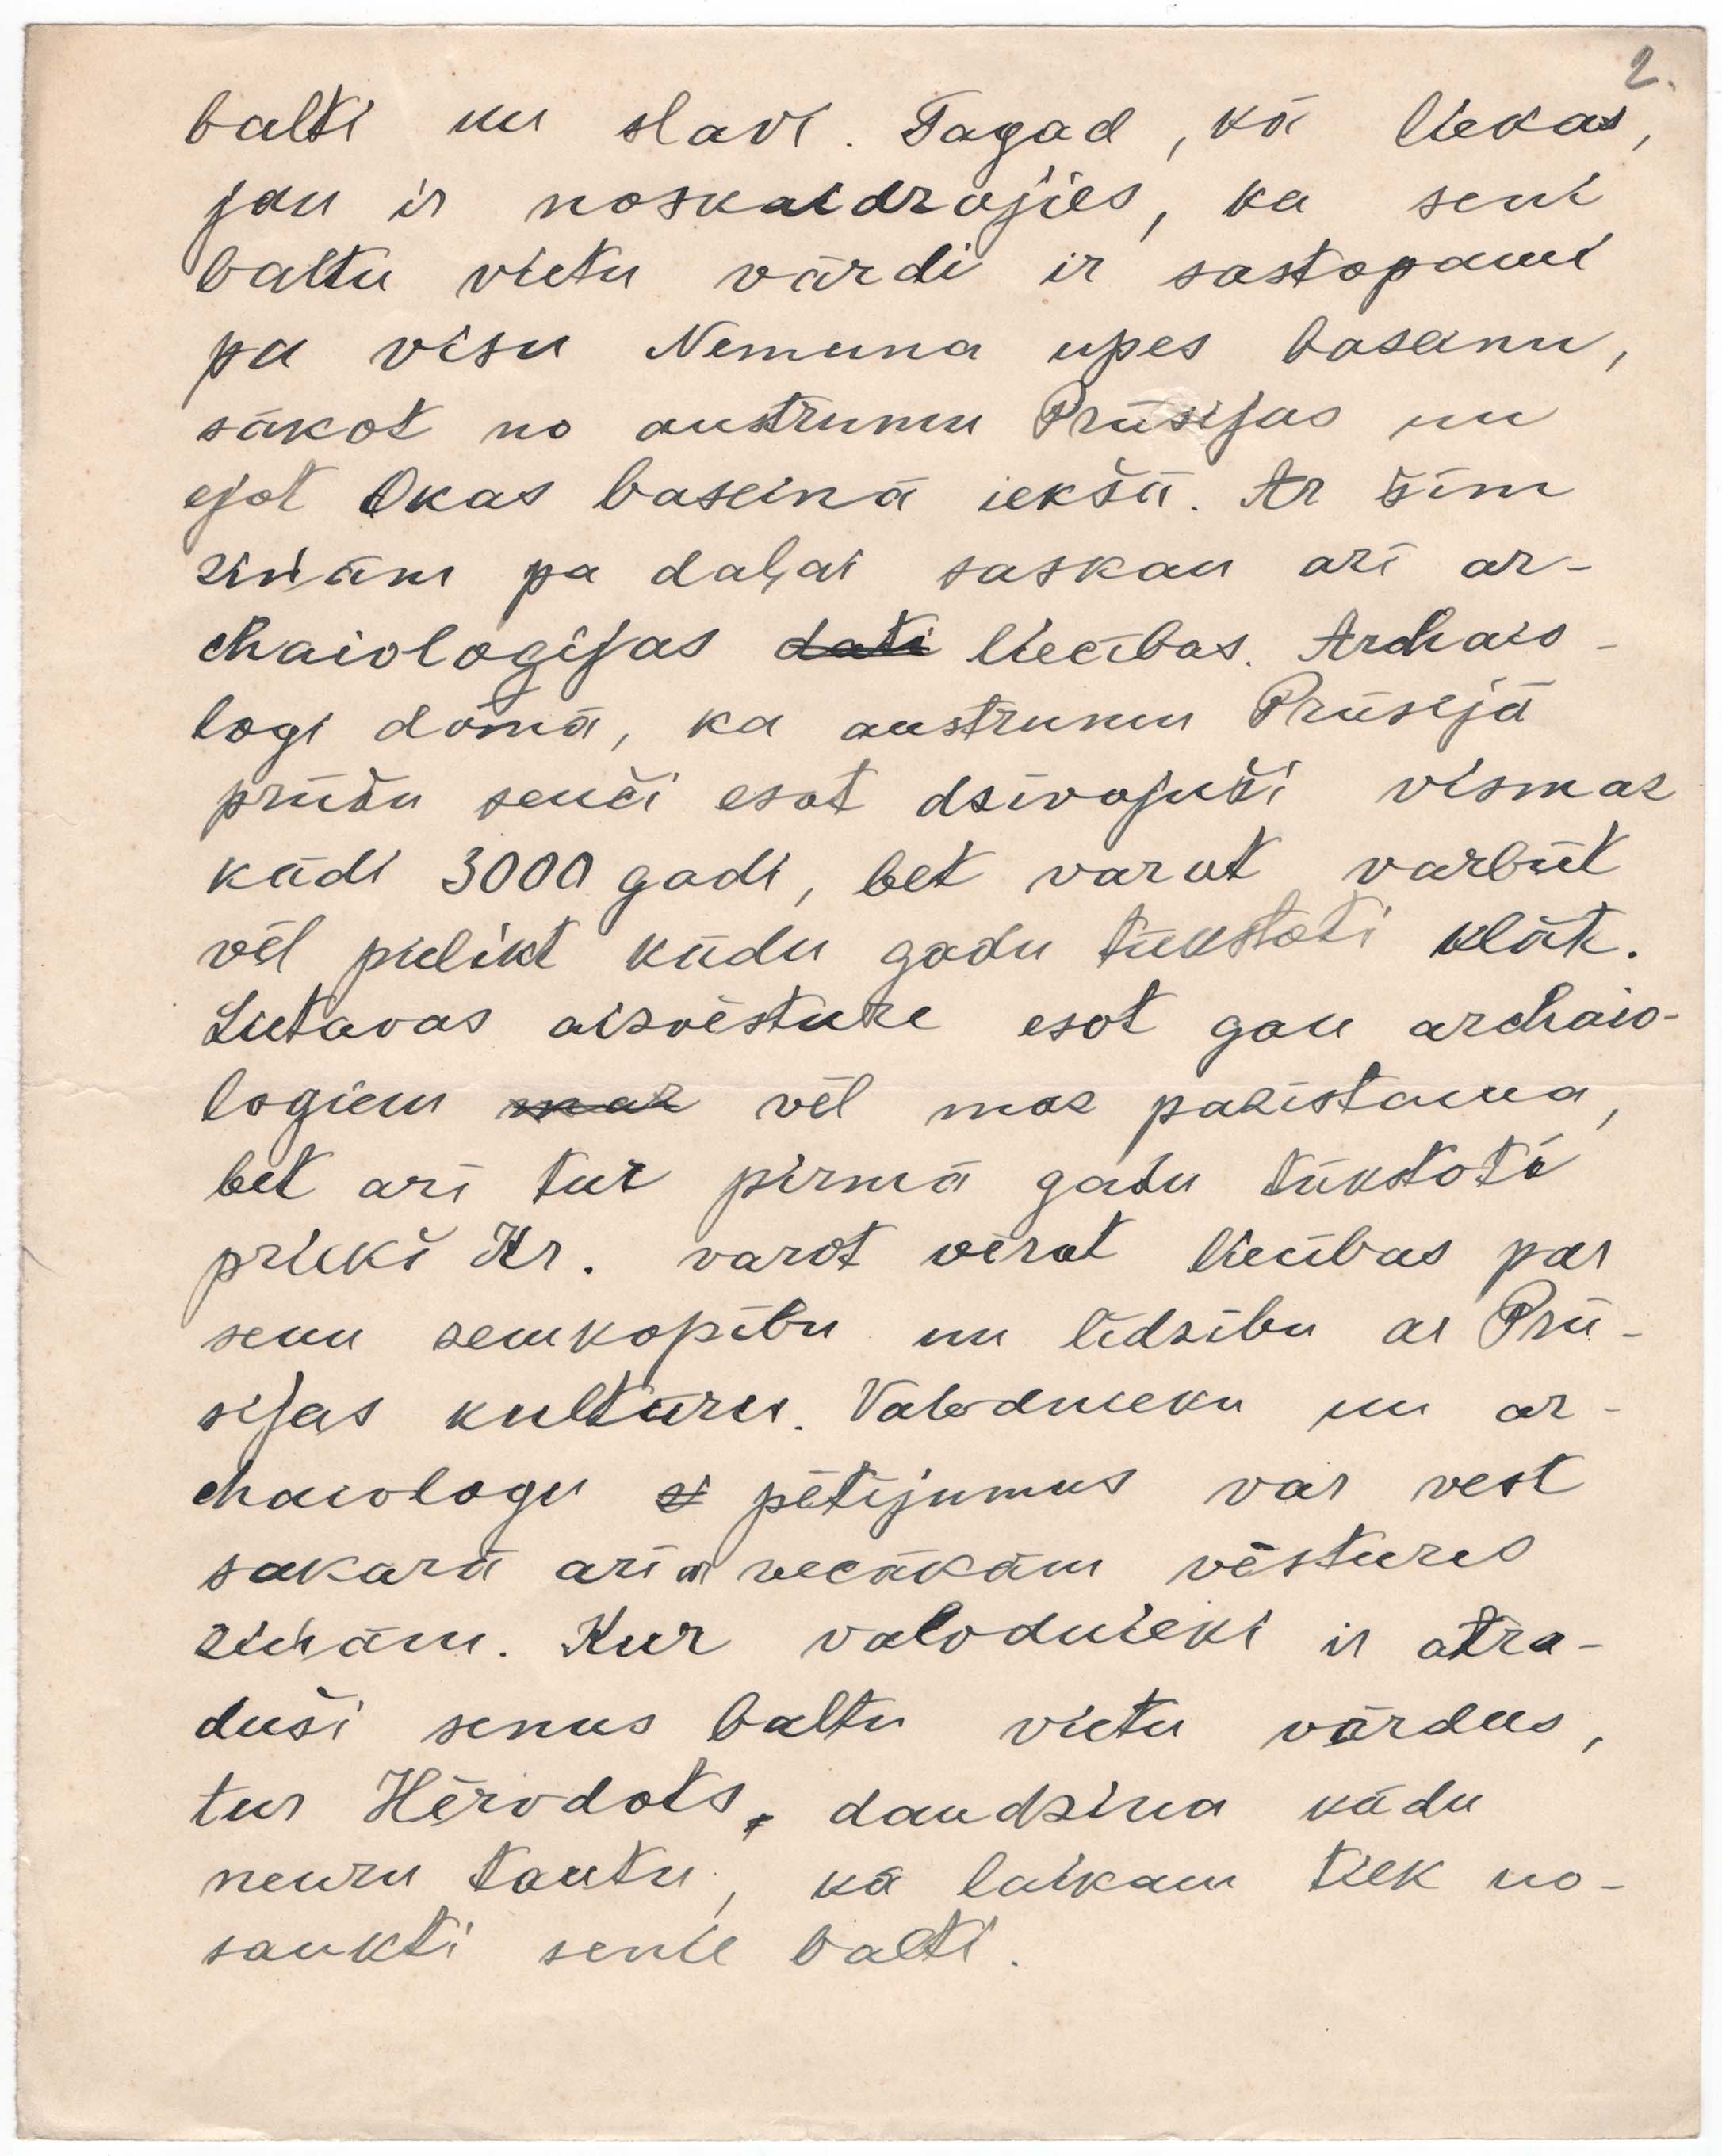 2.
balti un slavi. Tagad, kā liekas,
jau ir noskaidrojies, ka seni
baltu vietu vārdi ir sastopami
pa visu Nemuna upes baseinu,
sākot no austrumu Prūsijas un
ejot Okas baseinā iekšā. Ar šīm
ziņām pa daļai saskan arī ar-
chaioloģijas dati liecības. Archaio-
logi domā, ka austrumu Prūsijā
prūšu senči esot dzīvojuši vismaz
kādi 3000 gadi, bet varot varbūt
vēl pielikt kādu gadu tūkstoti klāt.
Lietavas aizvēsture esot gan archaio-
logiem maz vēl maz pazīstama,
bet arī tur pirmā gadu tūkstotī
priekš Kr. varot vērot liecības par
senu zemkopību un līdzību ar Prū-
sijas kultūru. Valodnieku un ar-
chaiologu pētījumus var vest
sakarā arī ar vecākām vēstures
ziņām. Kur valodnieki ir atra-
duši senus baltu vietu vārdus,
tur Hērodots daudzina kādu
neuru tautu, kā laikam tiek no-
saukti senie balti.